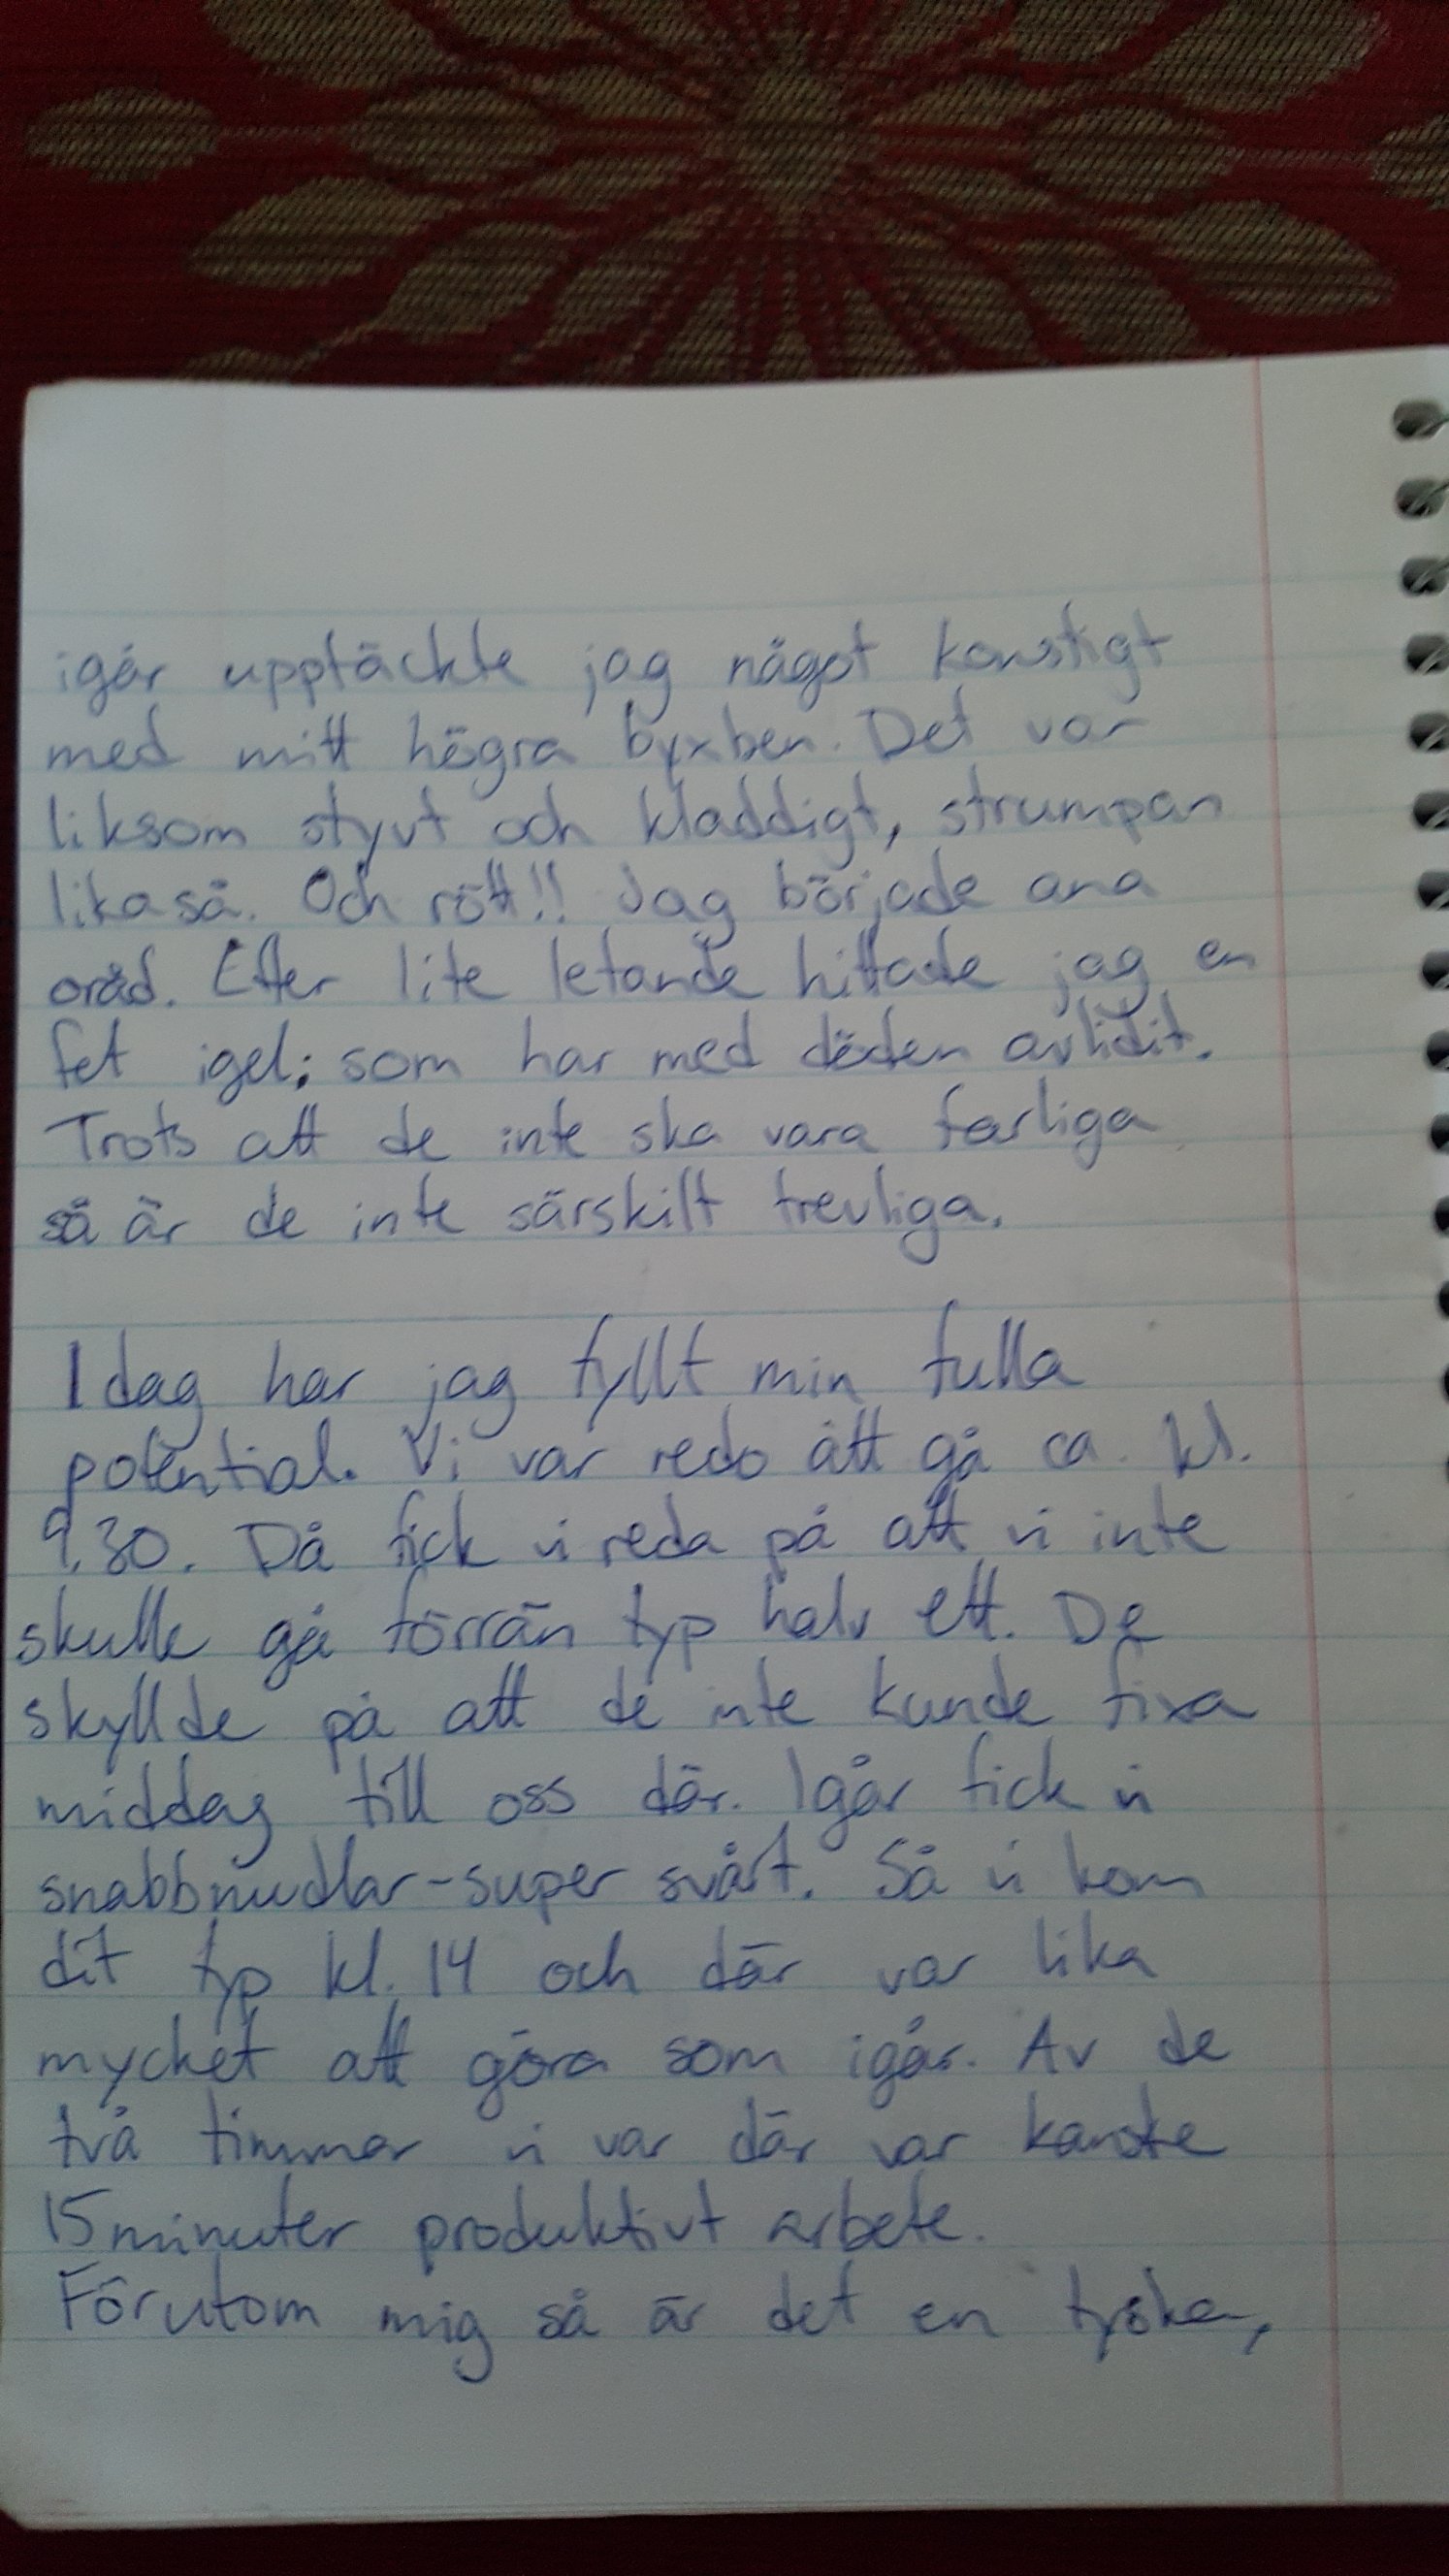 igår upptäckte jag något konstigt
med mitt högra byxben. Det var
liksom styvt och kladdigt, strumpan
likaså. Och rött!! Jag började ana
oråd. Efter lite letande hittade jag en
fet igel; som har med döden avlidit.
Trots att de inte ska vara farliga
så är de inte särskilt trevliga.
Idag har jag fyllt min fulla
potential. Vi var redo att gå ca. kl.
9.30. Då fick vi reda på att vi inte
skulle gå förrän typ halv ett. De
skyllde på att de inte kunde fixa
middag till oss där. Igår fick vi
snabbnudlar-super svårt. Så vi kom
dit typ kl. 14 och där var lika
mycket att göra som igår. Av de
två timmar vi var där var kanske
15 minuter produktivt arbete.
Förutom mig så är det en tyska,